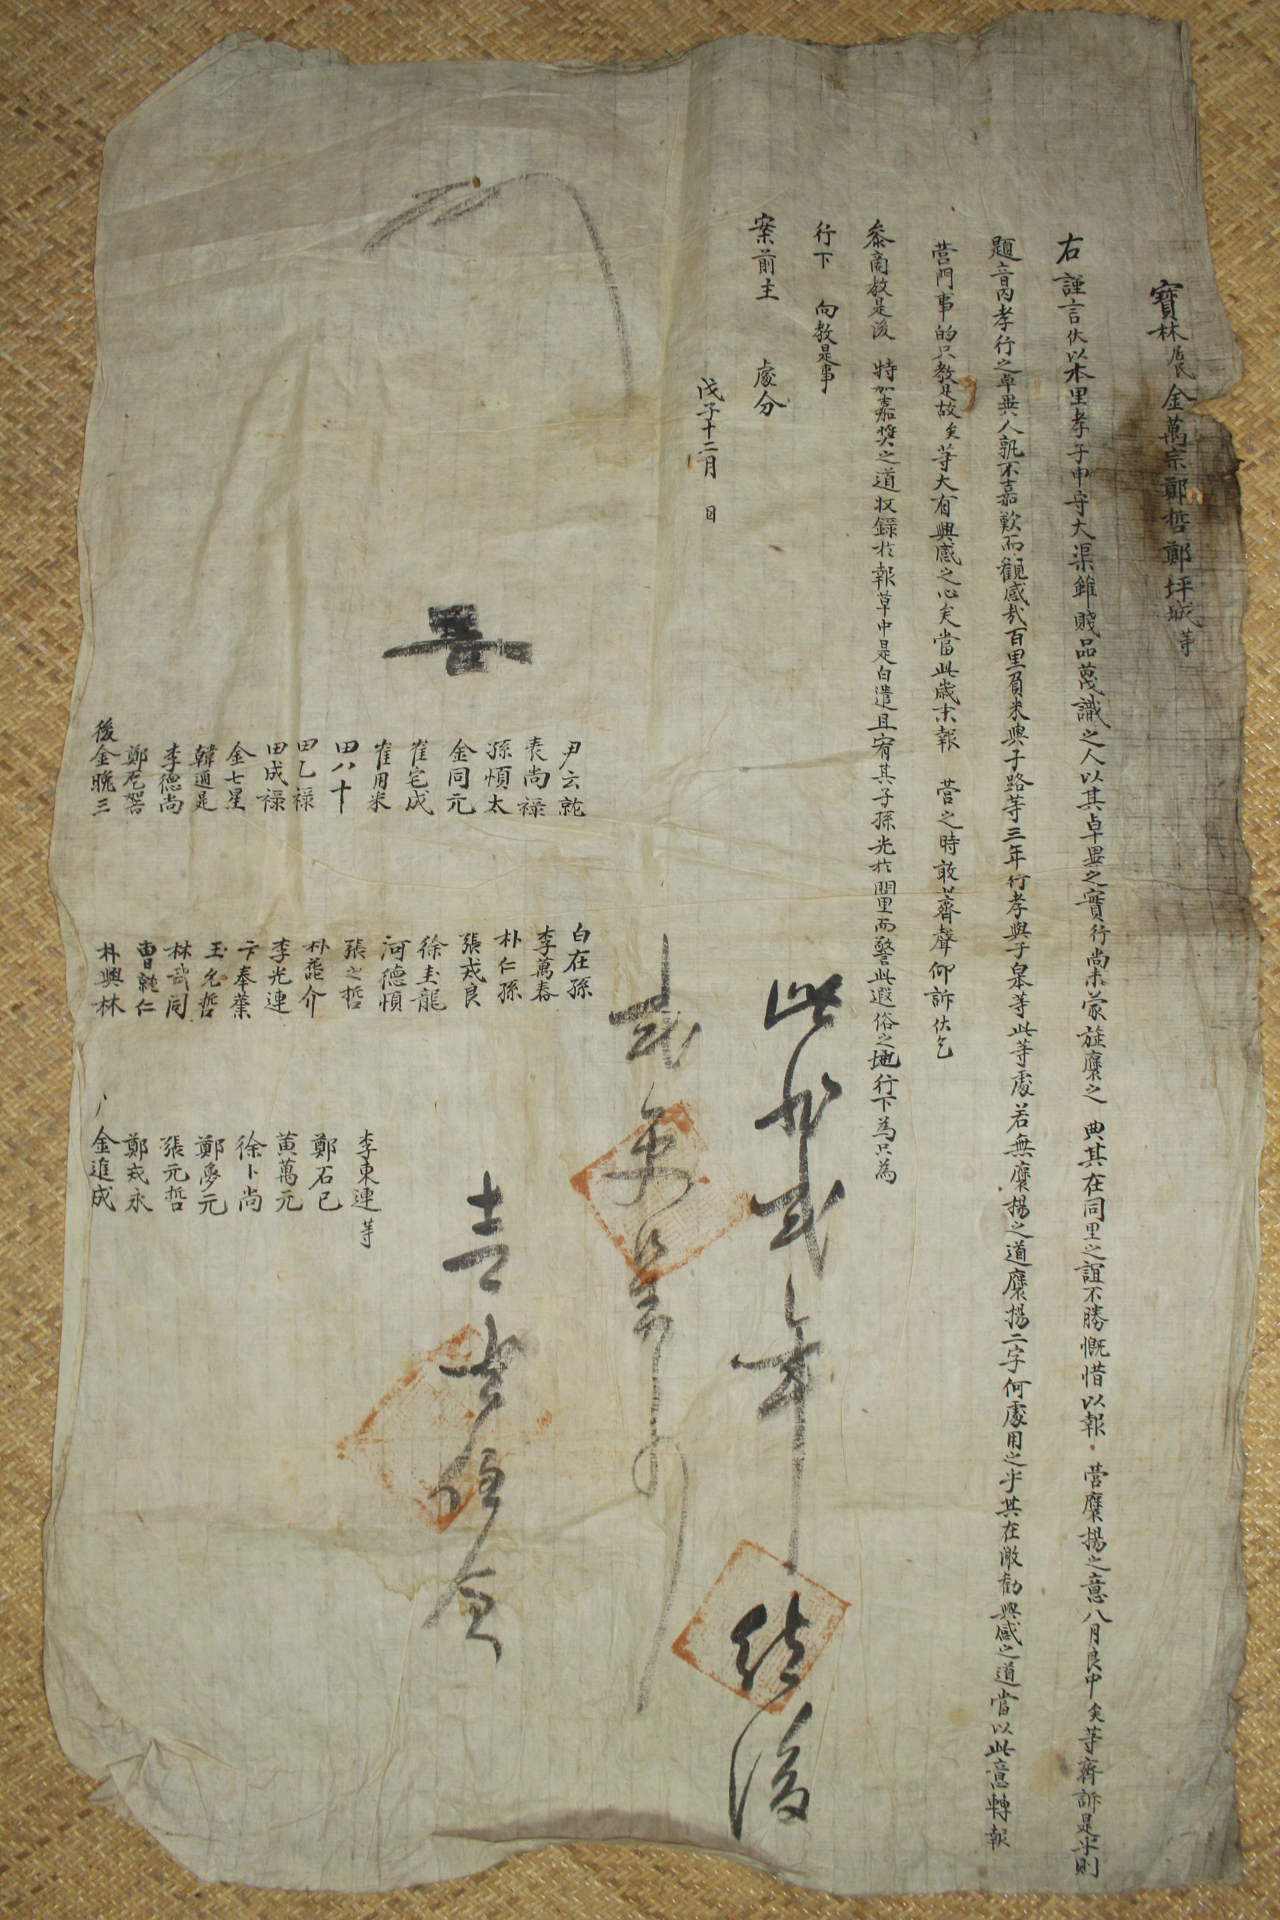 寶林居民金萬宗鄭哲鄭坪城等
右謹言伏以本里孝子申守大渠雖賤品蔑識之人以其卓異之實行尚未蒙旌褒之 典其在同里之誼不勝慨惜以報 營褒揚之意八月良中矣等齊訴是乎則
題音內孝行之卓異人孰不嘉歎而觀感哉百里負米與子路等三年行孝與子皐等此等處若無褒揚之道褒揚二字何處用之乎其在激勸興感之道當以此意轉報
營門事的只教是故矣等大有興感之心矣當此歲末報 營之時敢此齊聲仰訴伏乞
叅商教是後 特加嘉奬之道收錄於報草中是白遣且宥其子孫光於閭里而警此遐俗之地行下為只為
行下 向教是事
案前主 處分
戊子十二月 日
尹云乭
袁尚禄
孫順太
金同元
崔宅成
崔用釆
田八十
田乙禄
田成禄
金七星
韓通是
李德尚
金晩三
白在孫
李萬春
朴仁孫
張戒良
徐圭龍
河德順
張之哲
李光連
卞奉業
玉允哲
林哉同
曺純仁
朴興林
李東連 等
鄭石已
黃萬元
徐卜尚
鄭夢元
張元哲
鄭戎永
金進成